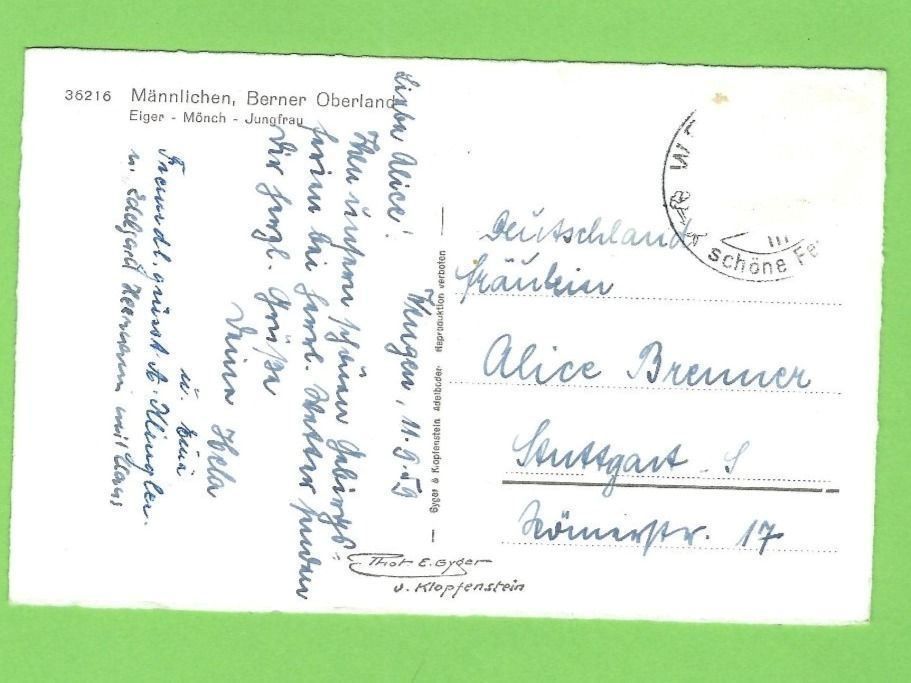 36216 Männlichen, Berner Oberland
Eiger - Mönch - Jungfrau
Wengen, 11.9.59
Liebe Alice!
Von unserm schönen Gebirgs-
ferien bei herrl. Wetter senden
Dir herzl. Grüße
Deine Hela
u.
Freundl. grüsst A. Klingler.
u. Edelgard Hermann mit Claus
Gyger & Klopfenstein Adelboden Reproduktion verboten
Phot E. Gyger
u. Klopfenstein
W
schöne Fe
Deutschland
Fräulein
Alice Brenner
Stuttgart - S
Römerstr. 17